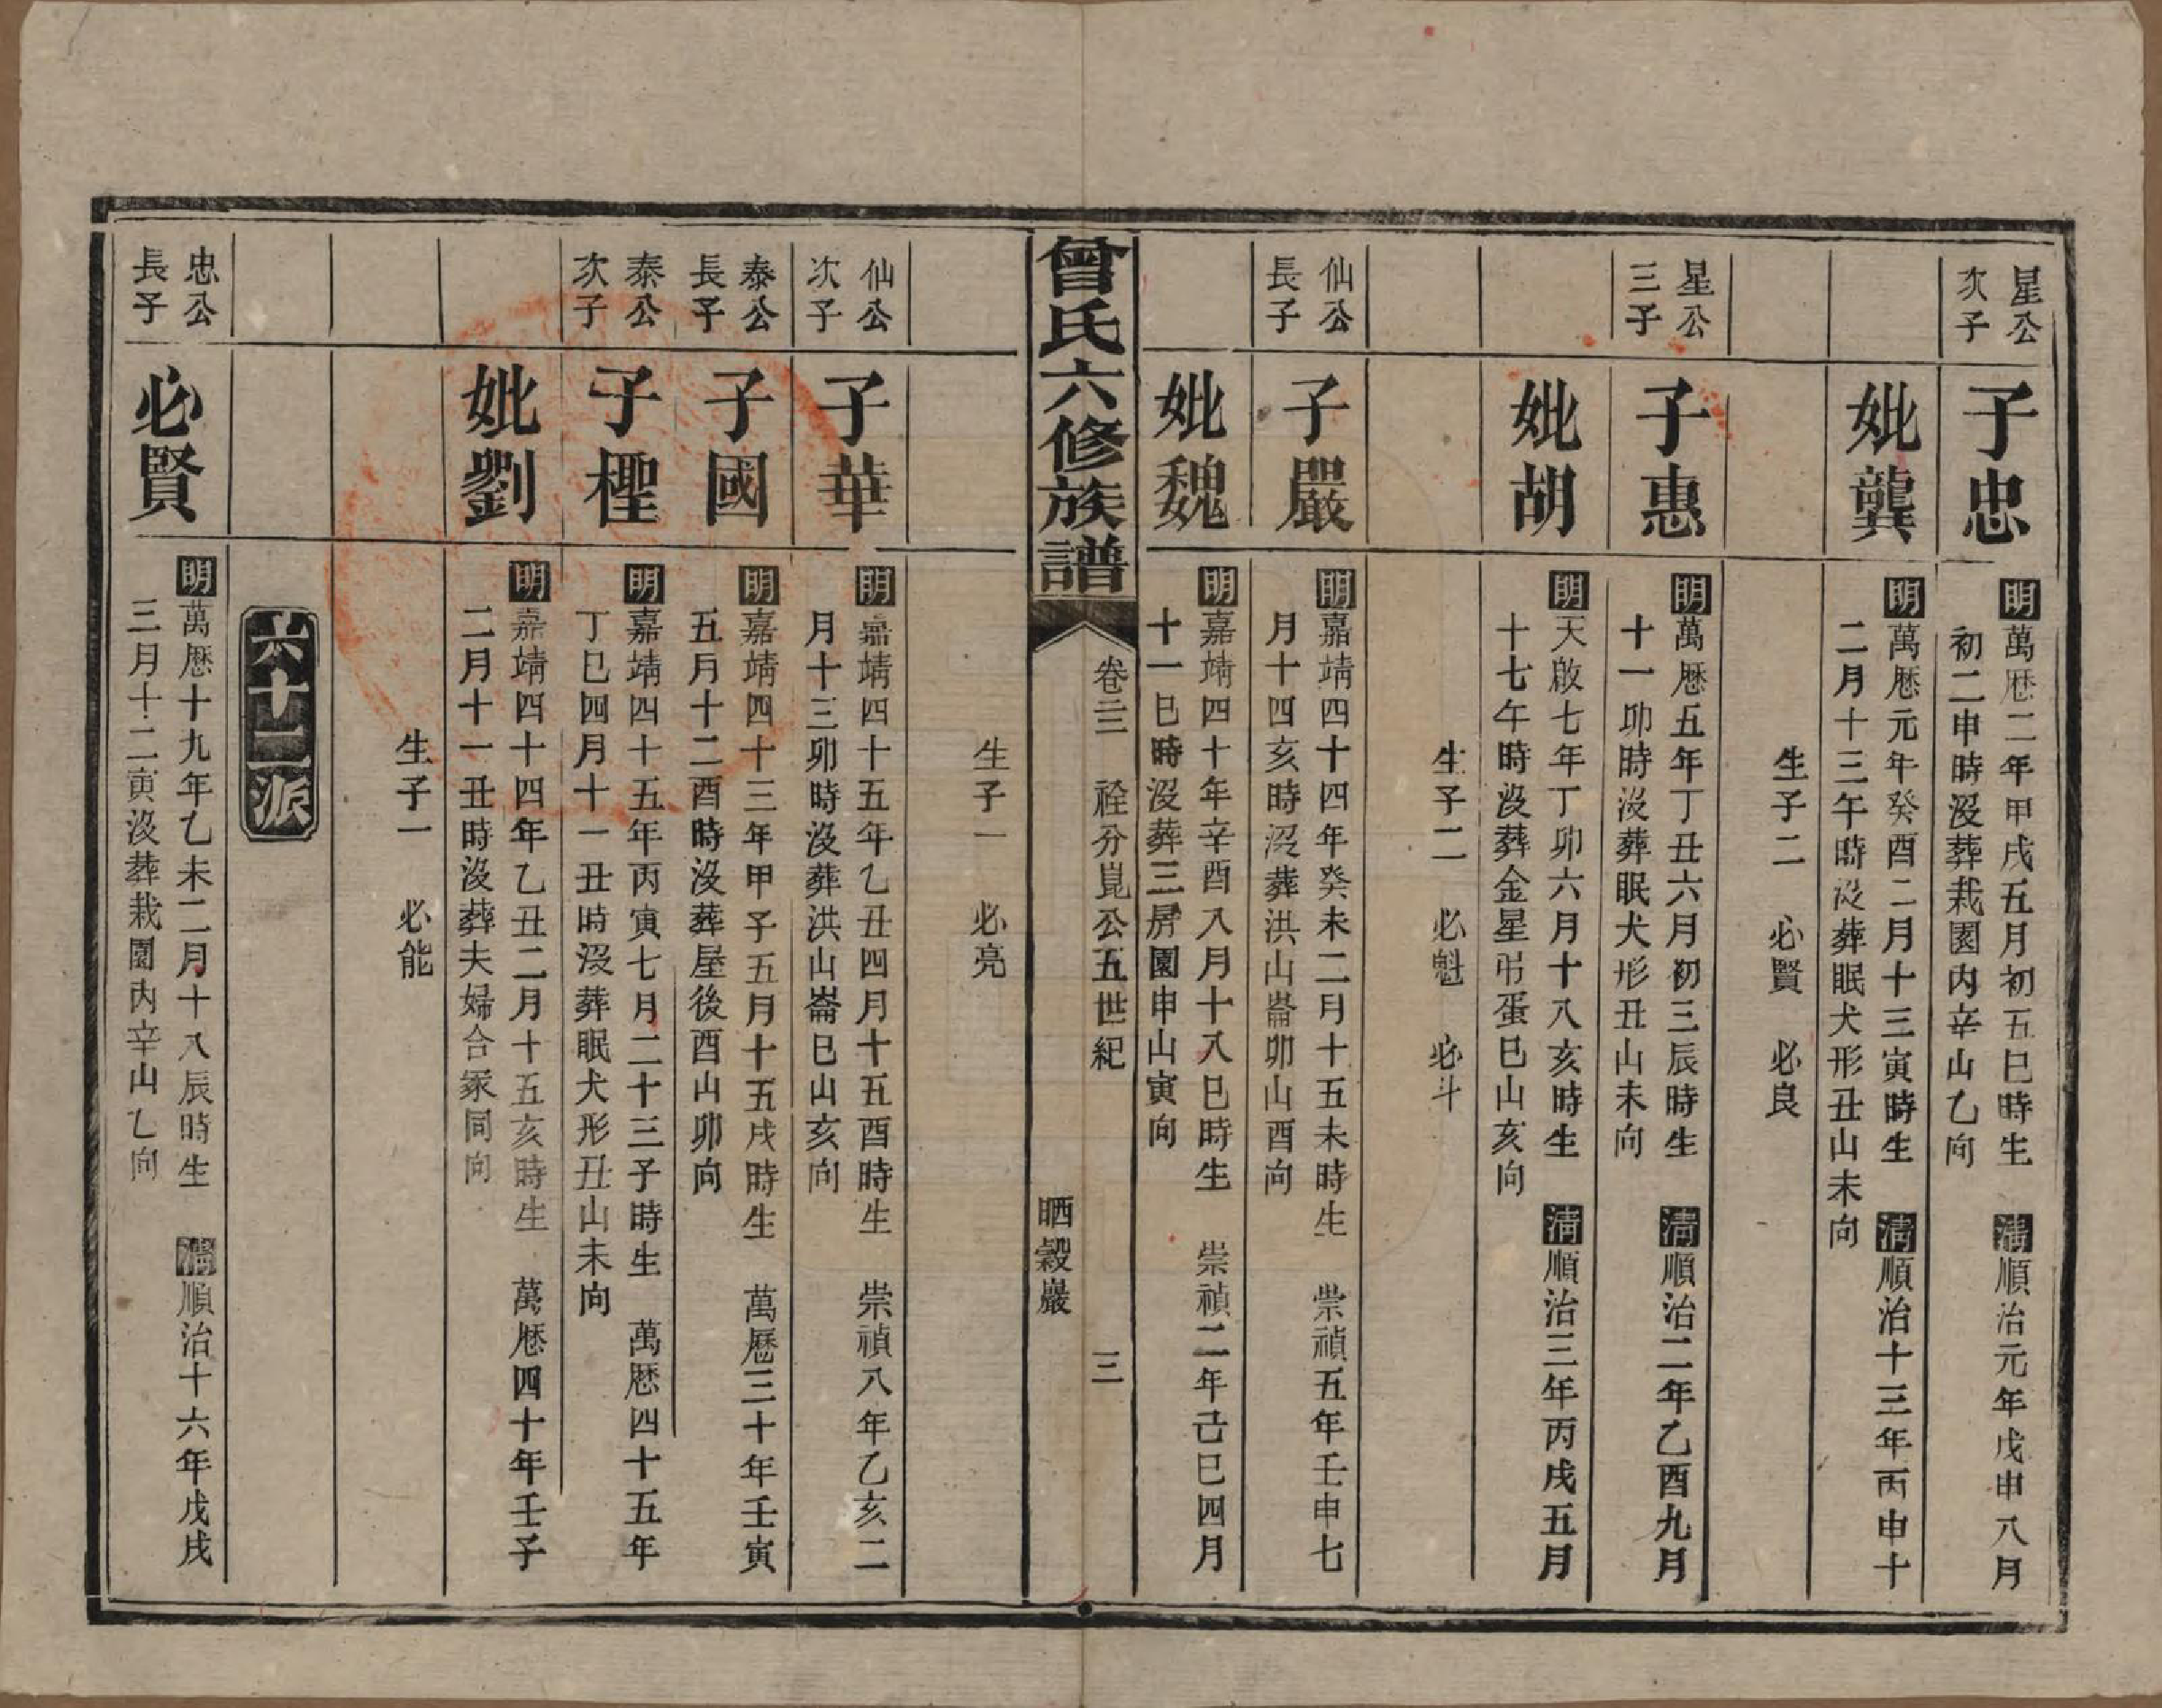 星公
次子
子忠
明萬厯二年甲戌五月初五巳時生 清順治元年戊申八月
初二申時沒葬栽園內辛山乙向
妣龔
明萬厯元年癸酉二月十三寅時生 清順治十三年丙申十
二月十三午時沒葬眠犬形丑山未向
生子二 必賢 必良
星公
三子
子惠
明萬厯五年丁丑六月初三辰時生 清順治二年乙酉九月
十一卯時沒葬眠犬形丑山未向
妣胡
明天啟七年丁卯六月十八亥時生 清順治三年丙戌五月
十七午時沒葬金星弔蛋巳山亥向
生子二 必魁 必斗
仙公
長子
子嚴
明嘉靖四十四年癸未二月十五未時生 崇禎五年壬申七
月十四亥時沒葬洪山崙卯山酉向
妣魏
明嘉靖四十年辛酉八月十八巳時生 崇禎二年己巳四月
十一巳時沒葬三房園申山寅向
曾氏六修族譜
卷三 祫分崑公五世紀 三
晒穀巖
生子一 必亮
仙公
次子
子華
明嘉靖四十五年乙丑四月十五酉時生 崇禎八年乙亥二
月十三卯時沒葬洪山崙巳山亥向
泰公
長子
子國
明嘉靖四十三年甲子五月十五戌時生 萬厯三十年壬寅
五月十二酉時沒葬屋後酉山卯向
泰公
次子
子檉
明嘉靖四十五年丙寅七月二十三子時生 萬厯四十五年
丁巳四月十一丑時沒葬眠犬形丑山未向
妣劉
明嘉靖四十四年乙丑二月十五亥時生 萬厯四十年壬子
二月十一丑時沒葬夫婦合冢同向
生子一 必能
六十二派
忠公
長子
必賢
明萬厯十九年乙未二月十八辰時生 清順治十六年戊戌
三月十二寅沒葬栽園內辛山乙向